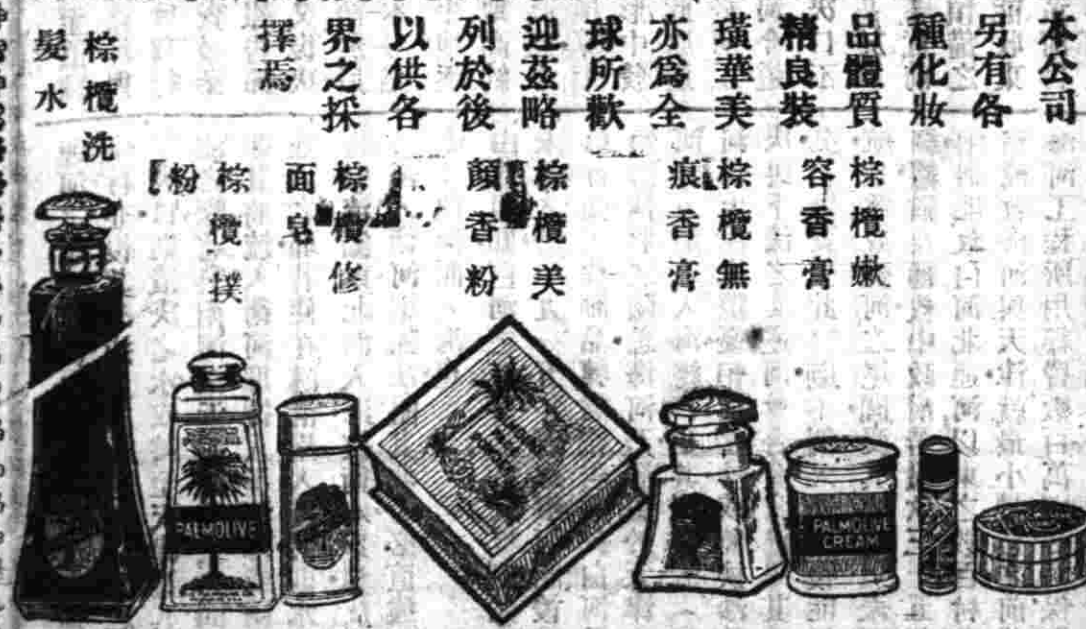 本公司
另有各
種化妝
品體質
精良裝
璜華美
亦爲全
球所歡
迎茲略
列於後
以供各
界之採
擇焉
棕欖嫩
容香膏
棕欖無
痕香膏
棕欖美
顏香粉
棕欖修
面皂
棕欖撲
粉
棕欖洗
髮水
PALMOLIVE
PALMOLIVE
CREAM